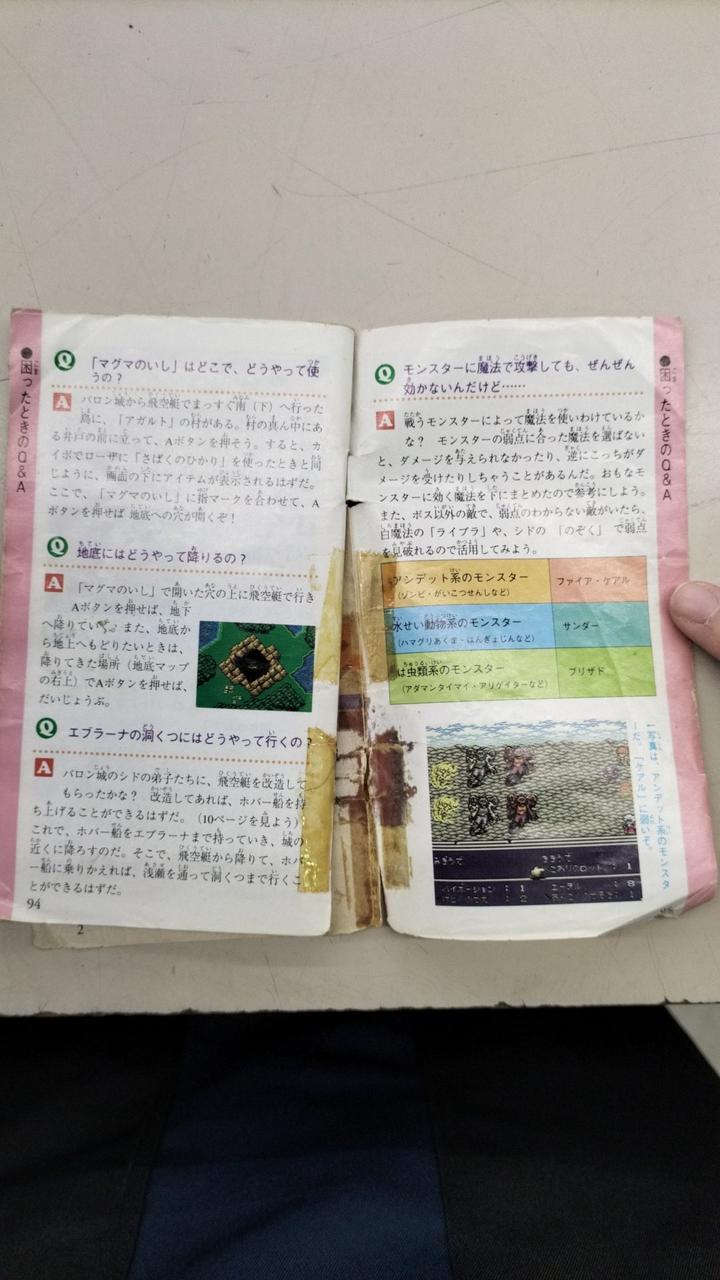 ●困ったときのQ&A
Q 「マグマのいし」はどこで、どうやって使
うの？
A バロン城から飛空艇でまっすぐ南（下）へ行った
島に、「アガルト」の村がある。村の真ん中にあ
る井戸の前に立って、Aボタンを押そう。すると、カ
イポでローザに「さばくのひかり」を使ったときと同
じように、画面の下にアイテムが表示されるはずだ。
ここで、「マグマのいし」に指マークを合わせて、A
ボタンを押せば 地底への穴が開くぞ！
Q 地底にはどうやって降りるの？
A 「マグマのいし」で開いた穴の上に飛空艇で行き
Aボタンを押せば、地下
へ降りていく。また、地底か
ら地上へもどりたいときは、
降りてきた場所（地底マップ
の右上）でAボタンを押せば、
だいじょうぶ。
Q エブラーナの洞くつにはどうやって行くの？
A バロン城のシドの弟子たちに、飛空艇を改造して
もらったかな？ 改造してあれば、ホバー船を持
ち上げることができるはずだ。（10ページを見よう）
これで、ホバー船をエブラーナまで持っていき、城の
近くに降ろすのだ。そこで、飛空艇から降りて、ホバ
ー船に乗りかえれば、浅瀬を通って洞くつまで行くこ
とができるはずだ。
94
2
Q モンスターに魔法で攻撃しても、ぜんぜん
効かないんだけど……
A 戦うモンスターによって魔法を使いわけているか
な？ モンスターの弱点に合った魔法を選ばない
と、ダメージを与えられなかったり、逆にこっちがダ
メージを受けたりしちゃうことがあるんだ。おもなモ
ンスターに効く魔法を下にまとめたので参考にしよう。
また、ボス以外の敵で、弱点のわからない敵がいたら、
白魔法の「ライブラ」や、シドの 「のぞく」で弱点
を見破れるので活用してみよう。
アンデット系のモンスター ファイア・ケアル
（ゾンビ・がいこつせんしなど）
水せい動物系のモンスター サンダー
（ハマグリあくま・はんぎょじんなど）
は虫類系のモンスター ブリザド
（アダマンタイマイ・アリゲイターなど）
↑写真は、アンデット系のモンスタ
ーだ。「ケアル」に弱いぞ。
みぎうで ききうで
ロッド：1
：1 エーテル ：8
：2 ：1
●困ったときのQ&A